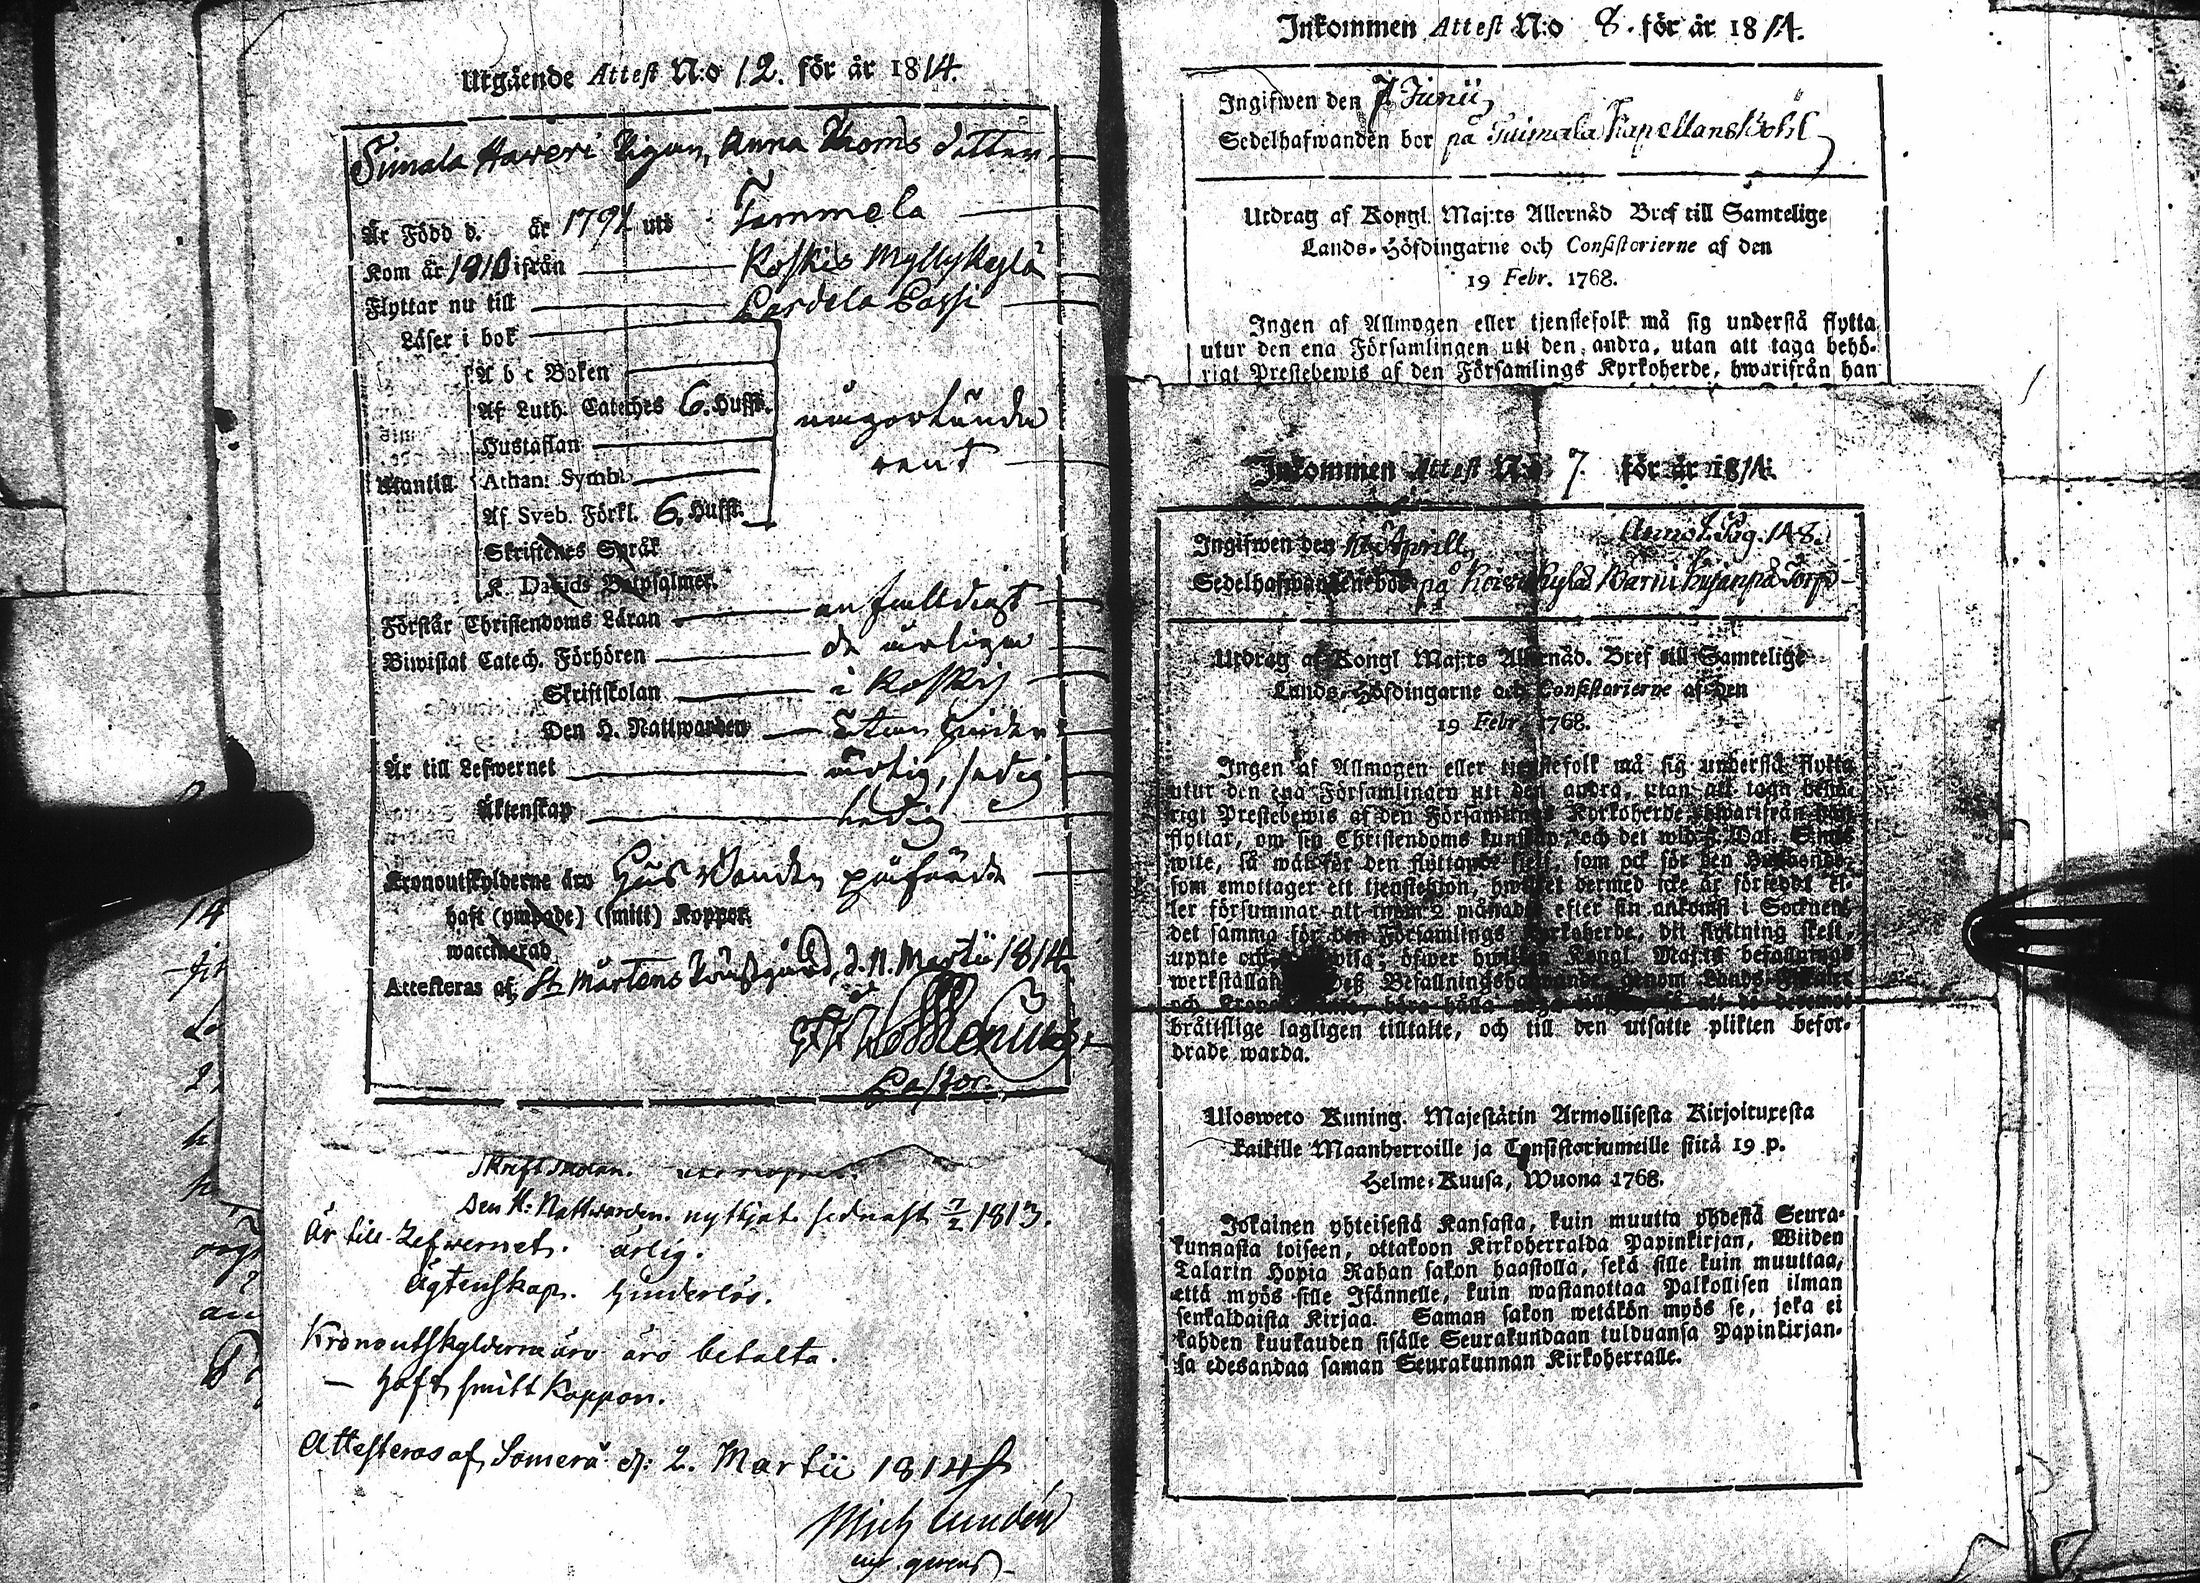 Utgående Attest N:o 12. för år 1814.
Simala Haveri Pigan, Anna Thoms dotter
Är Född d. år 1791 uti Tammela
Kom år 1810 ifrån Koskis Myllykylä
Flyttar nu till Pardela Passi
Läser i bok
A b c Boken
Af Luth. Cateches 6. Hufst.
någorlunda
Hustaflan
rent
Utantill Athan: Symb:
Af Sveb. Förkl. 6. Hufst.
Skriftenes Språk
K. Davids Botpsalmer.
Förstår Christendoms Läran enfaldigt
Biwistat Catech. Förhören de årliga
Skriftskolan i Koskis
Den H. Nattwarden
Är till Lefwernet ärlig, sedig
Äktenskap ledig
Kronoutskylderne äro Husbonden påförde
haft (ympade) (smitt) Koppor.
waccinerad
Attesteras af St Mårtens Prästgård, d. 11. Martii 1814
Pastor.
Skriftskolan.
Den H: Nattwarden. nyttjat sednast 7/2 1813.
Är till Lefwernet. ärlig.
Ägtenskap. hinderlös.
Kronoutskylderna äro betalta.
— haft smitt Koppor.
Attesteras af Somerå d: 2. Martii 1814
Mich Lundén
Inkommen Attest N:o 8. för år 1814.
Ingifwen den 7 Junii,
Sedelhafwanden bor på Tuimala Kapellansbohl
Utdrag af Kongl. Maj:ts Allernåd Bref till Samtelige
Lands-Höfdingarne och Consistorierne af den
19 Febr. 1768.
Ingen af Allmogen eller tjenstefolk må sig understå flytta
utur den ena Församlingen uti den andra, utan att taga behö-
rigt Prestebewis af den Församlings Kyrkoherde, hwarifrån han
Inkommen Attest N:o 7. för år 1814.
Ingifwen den Aprill, Annot. Pag. 148.
Sedelhafwanden bor på Torp
Utdrag af Kongl Maj:ts Allernåd. Bref till Samtelige
Lands-Höfdingarne och Consistorierne af den
19 Febr. 1768.
Ingen af Allmogen eller tjenstefolk må sig understå flytta
utur den ena Församlingen uti den andra, utan att taga behö-
rigt Prestebewis af den Församlings Kyrkoherde, hwarifrån han
flyttar, om sin Christendoms kunskap, och det wid 5 Dal. S:mts
wite, så wäl för den flyttande sielf, som ock för den Husbonde,
som emottager ett tjenstehjon, hwilket dermed icke är försedt el-
ler försummar att inom 2 månader efter sin ankomst i Socknen
det samma för den Församlings Kyrkoherde, dit flyttning skett,
uppte och ; öfwer hwilken Kongl. Maj:ts befallnings
werkställande Befallningshafwande, genom Lands-Fiskaler
och böra hålla
bråttslige lagligen tilltalte, och till den utsatte plikten befor-
drade warda.
Ulosweto Kuning. Majestätin Armollisesta Kirjoituxesta
kaikille Maanherroille ja Consistoriumeille siitä 19 p.
Helme-Kuusa, Wuona 1768.
Jokainen yhteisestä Kansasta, kuin muutta yhdestä Seura-
kunnasta toiseen, ottakoon Kirkoherralda Papinkirjan, Wiiden
Talarin Hopia Rahan sakon haastolla, sekä sille kuin muuttaa,
että myös sille Isännelle, kuin wastanottaa Palkollisen ilman
senkaldaista Kirjaa. Saman sakon wetäkön myös se, joka ei
kahden kuukauden sisälle Seurakundaan tulduansa Papinkirjan-
sa edesandaa saman Seurakunnan Kirkoherralle.